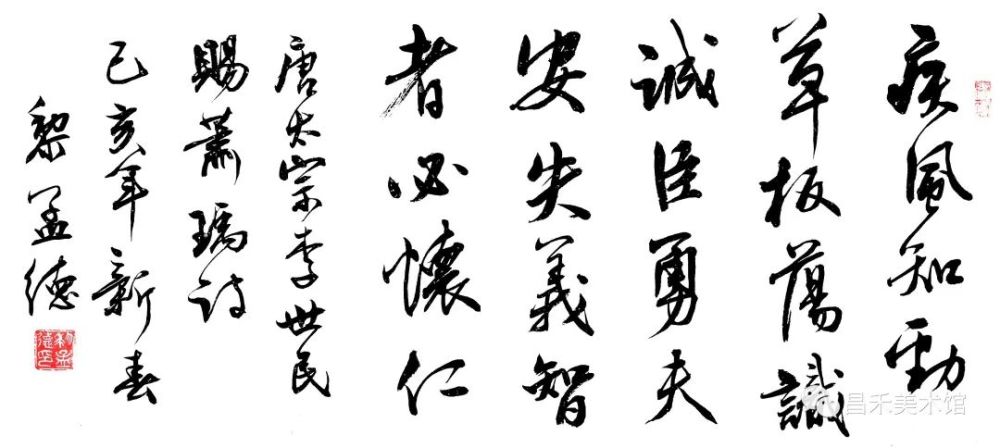 疾風知勁
草板蕩識
誠臣勇夫
安失義智
者必懷仁
唐太宗李世民
賜蕭瑀詩
己亥年新春
黎孟德
昌禾美术馆